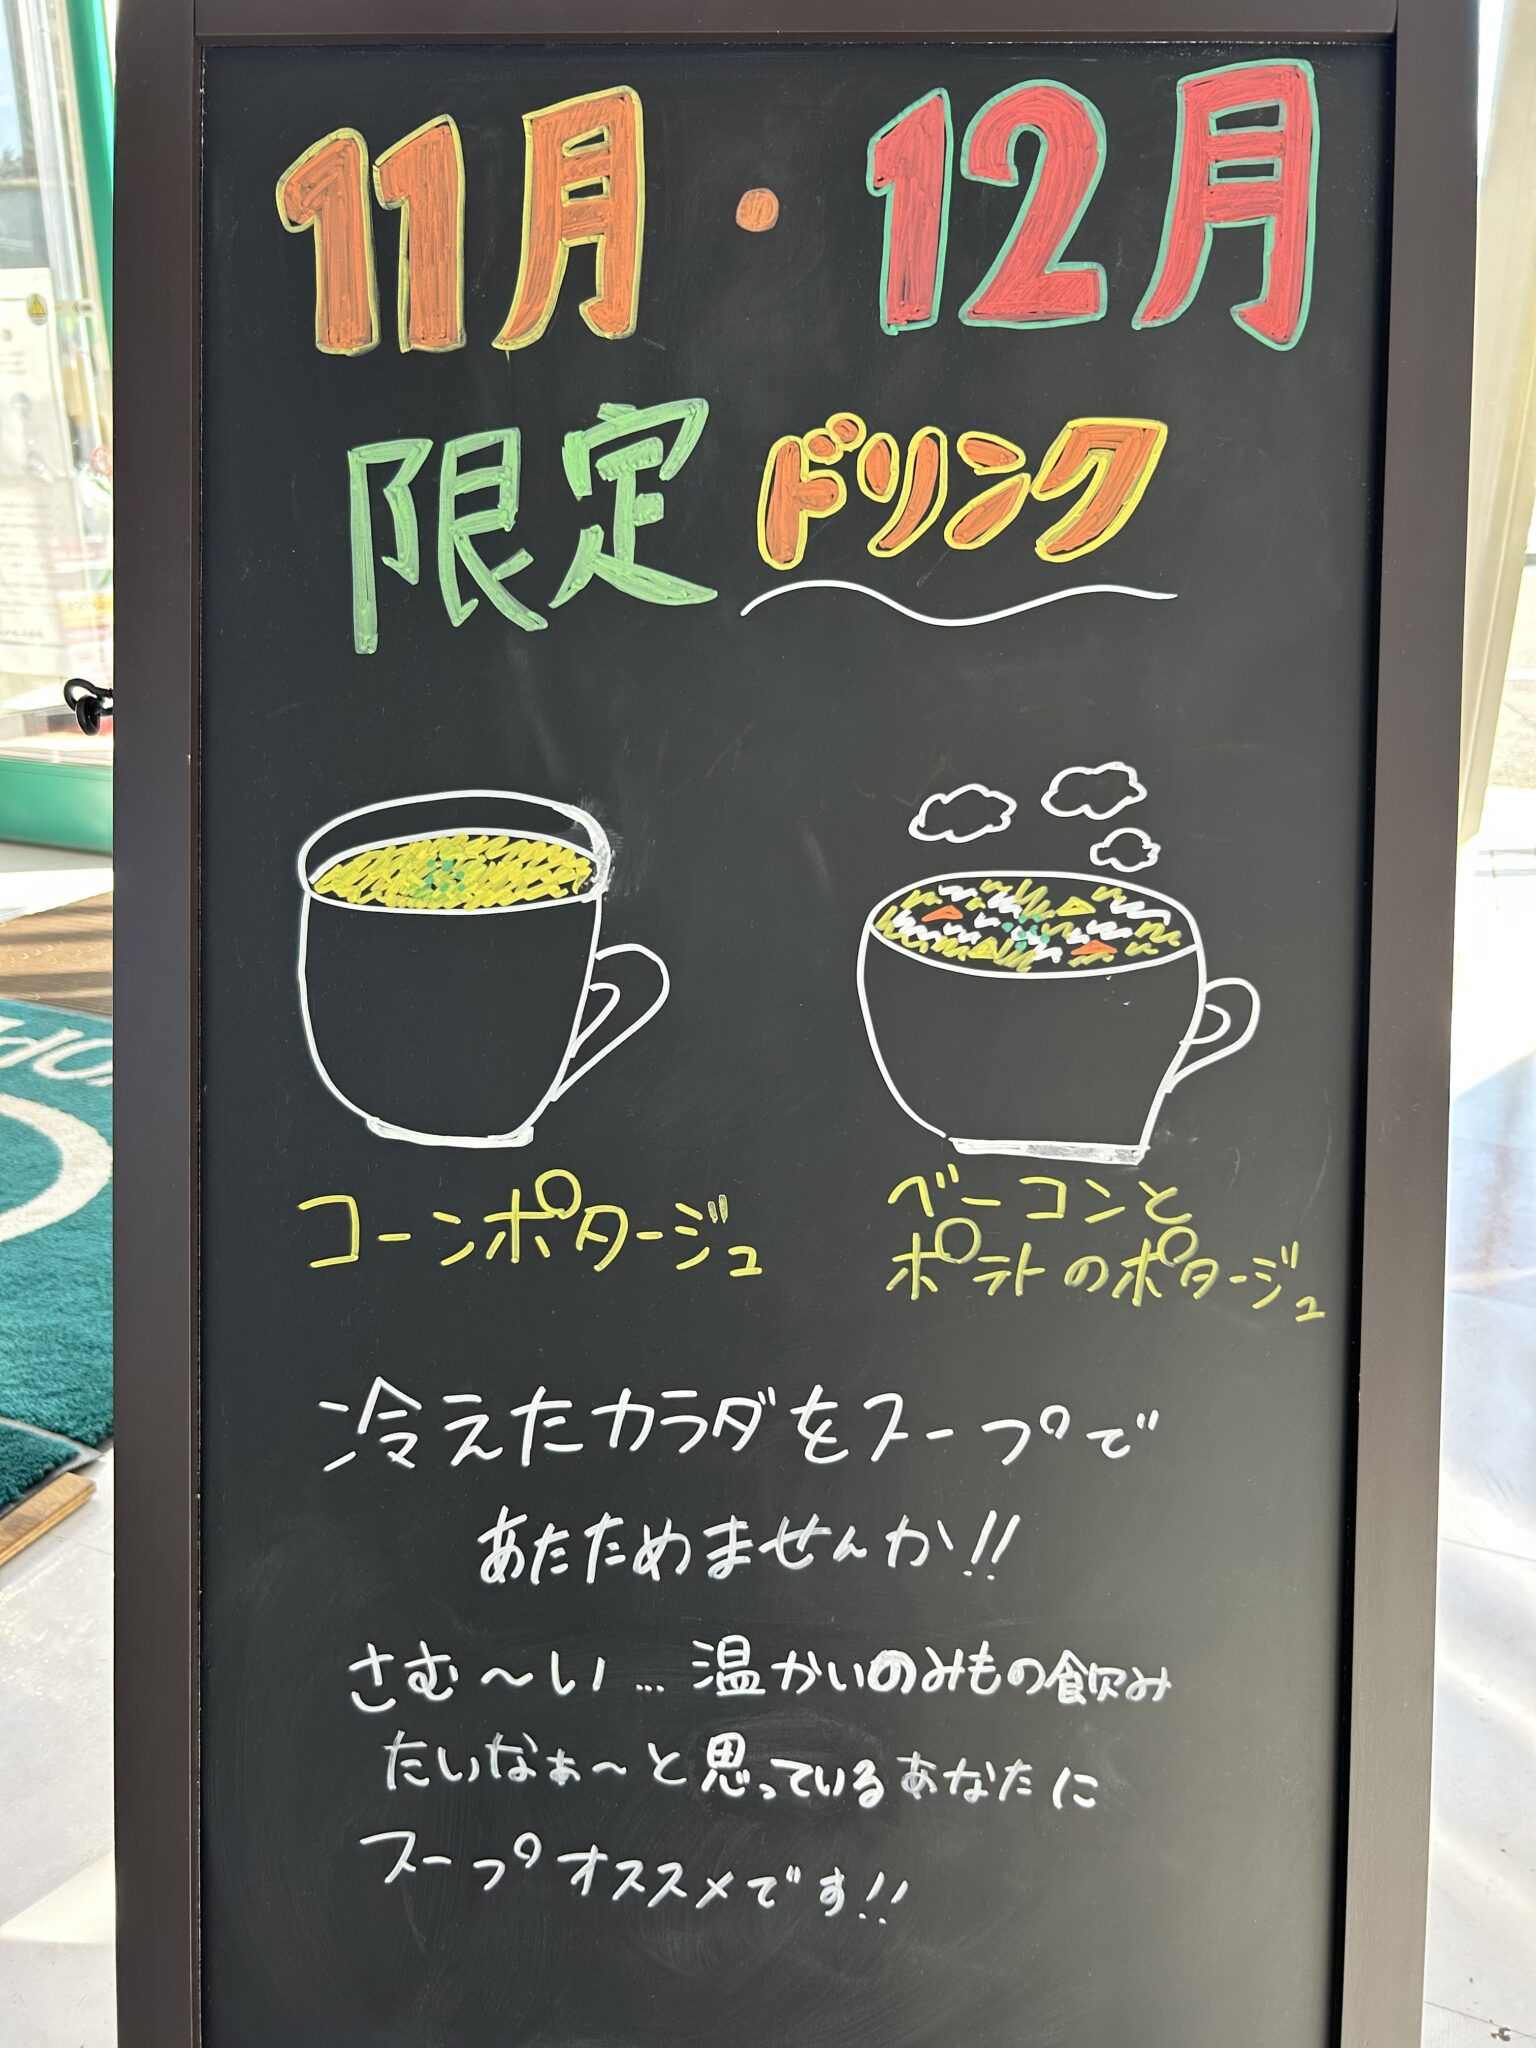 11月・12月
限定ドリンク
コーンポタージュ
ベーコンと
ポテトのポタージュ
冷えたカラダをスープで
あたためませんか!!
さむ～い…温かいのみもの飲み
たいなぁ～と思っているあなたに
スープオススメです!!